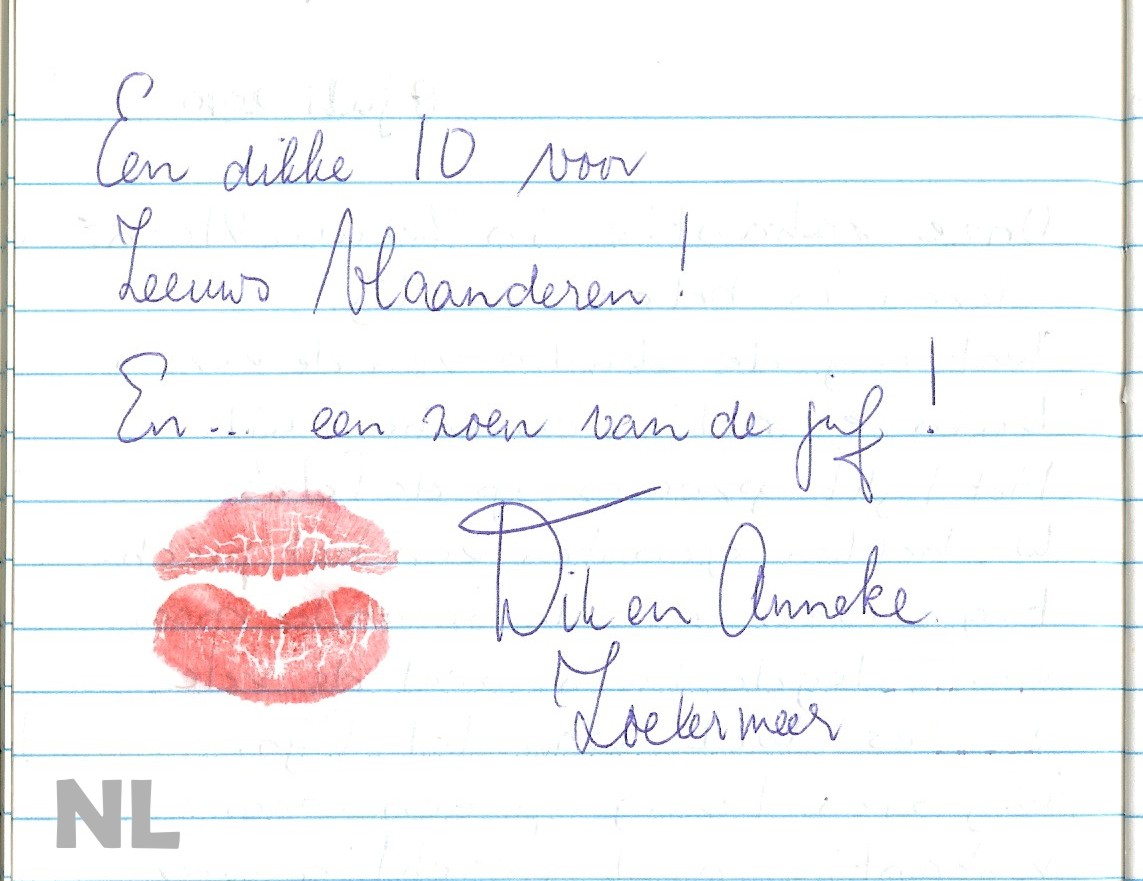 Een dikke 10 voor
Zeeuws Vlaanderen!
En... een zoen van de juf!
Dik en Anneke
Zoetermeer
NL